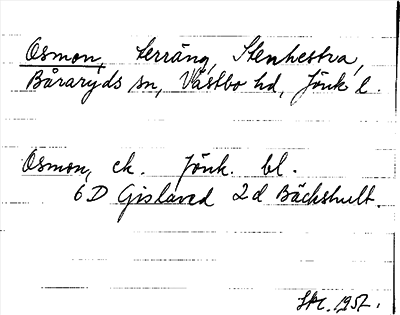 Osmon, terräng, Stenhestva,
Båraryds sn, Västbo hd, Jönk l.
Osmon, ek. Jönk. bl.
6 D Gislaved 2 d Bäckshult.
1957.